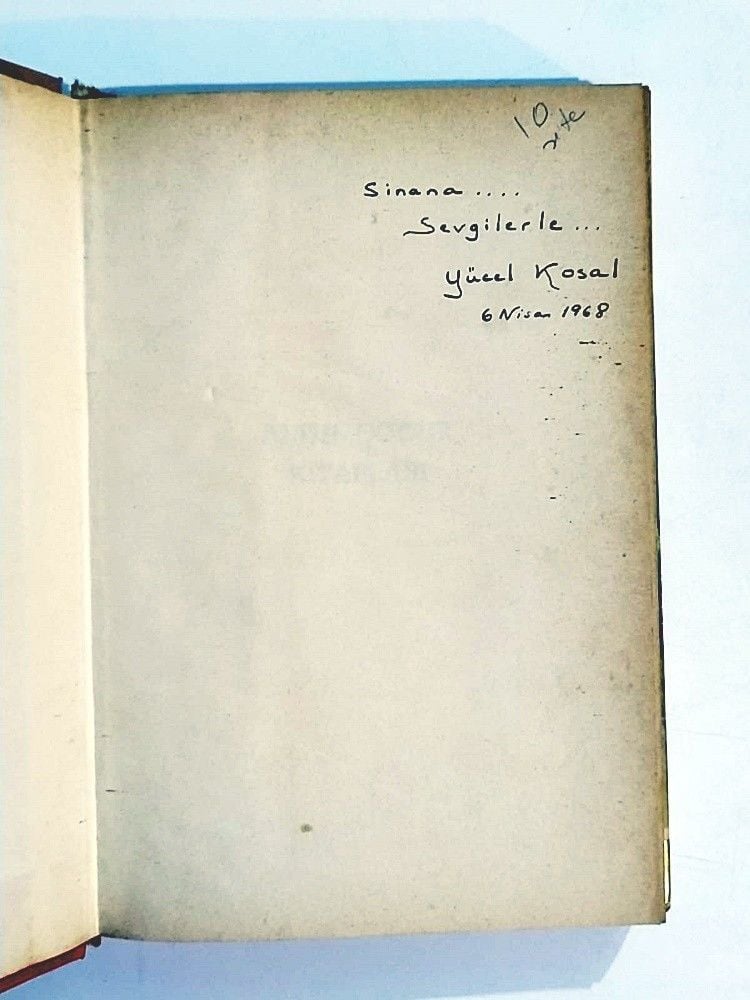 10
Sinana ....
Sevgilerle ...
Yücel Kosal
6 Nisan 1968